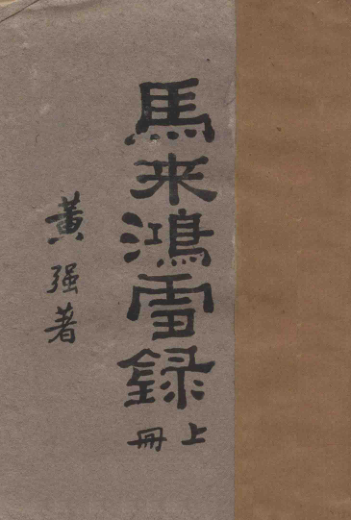 馬来鴻雪録
上冊
黃强著